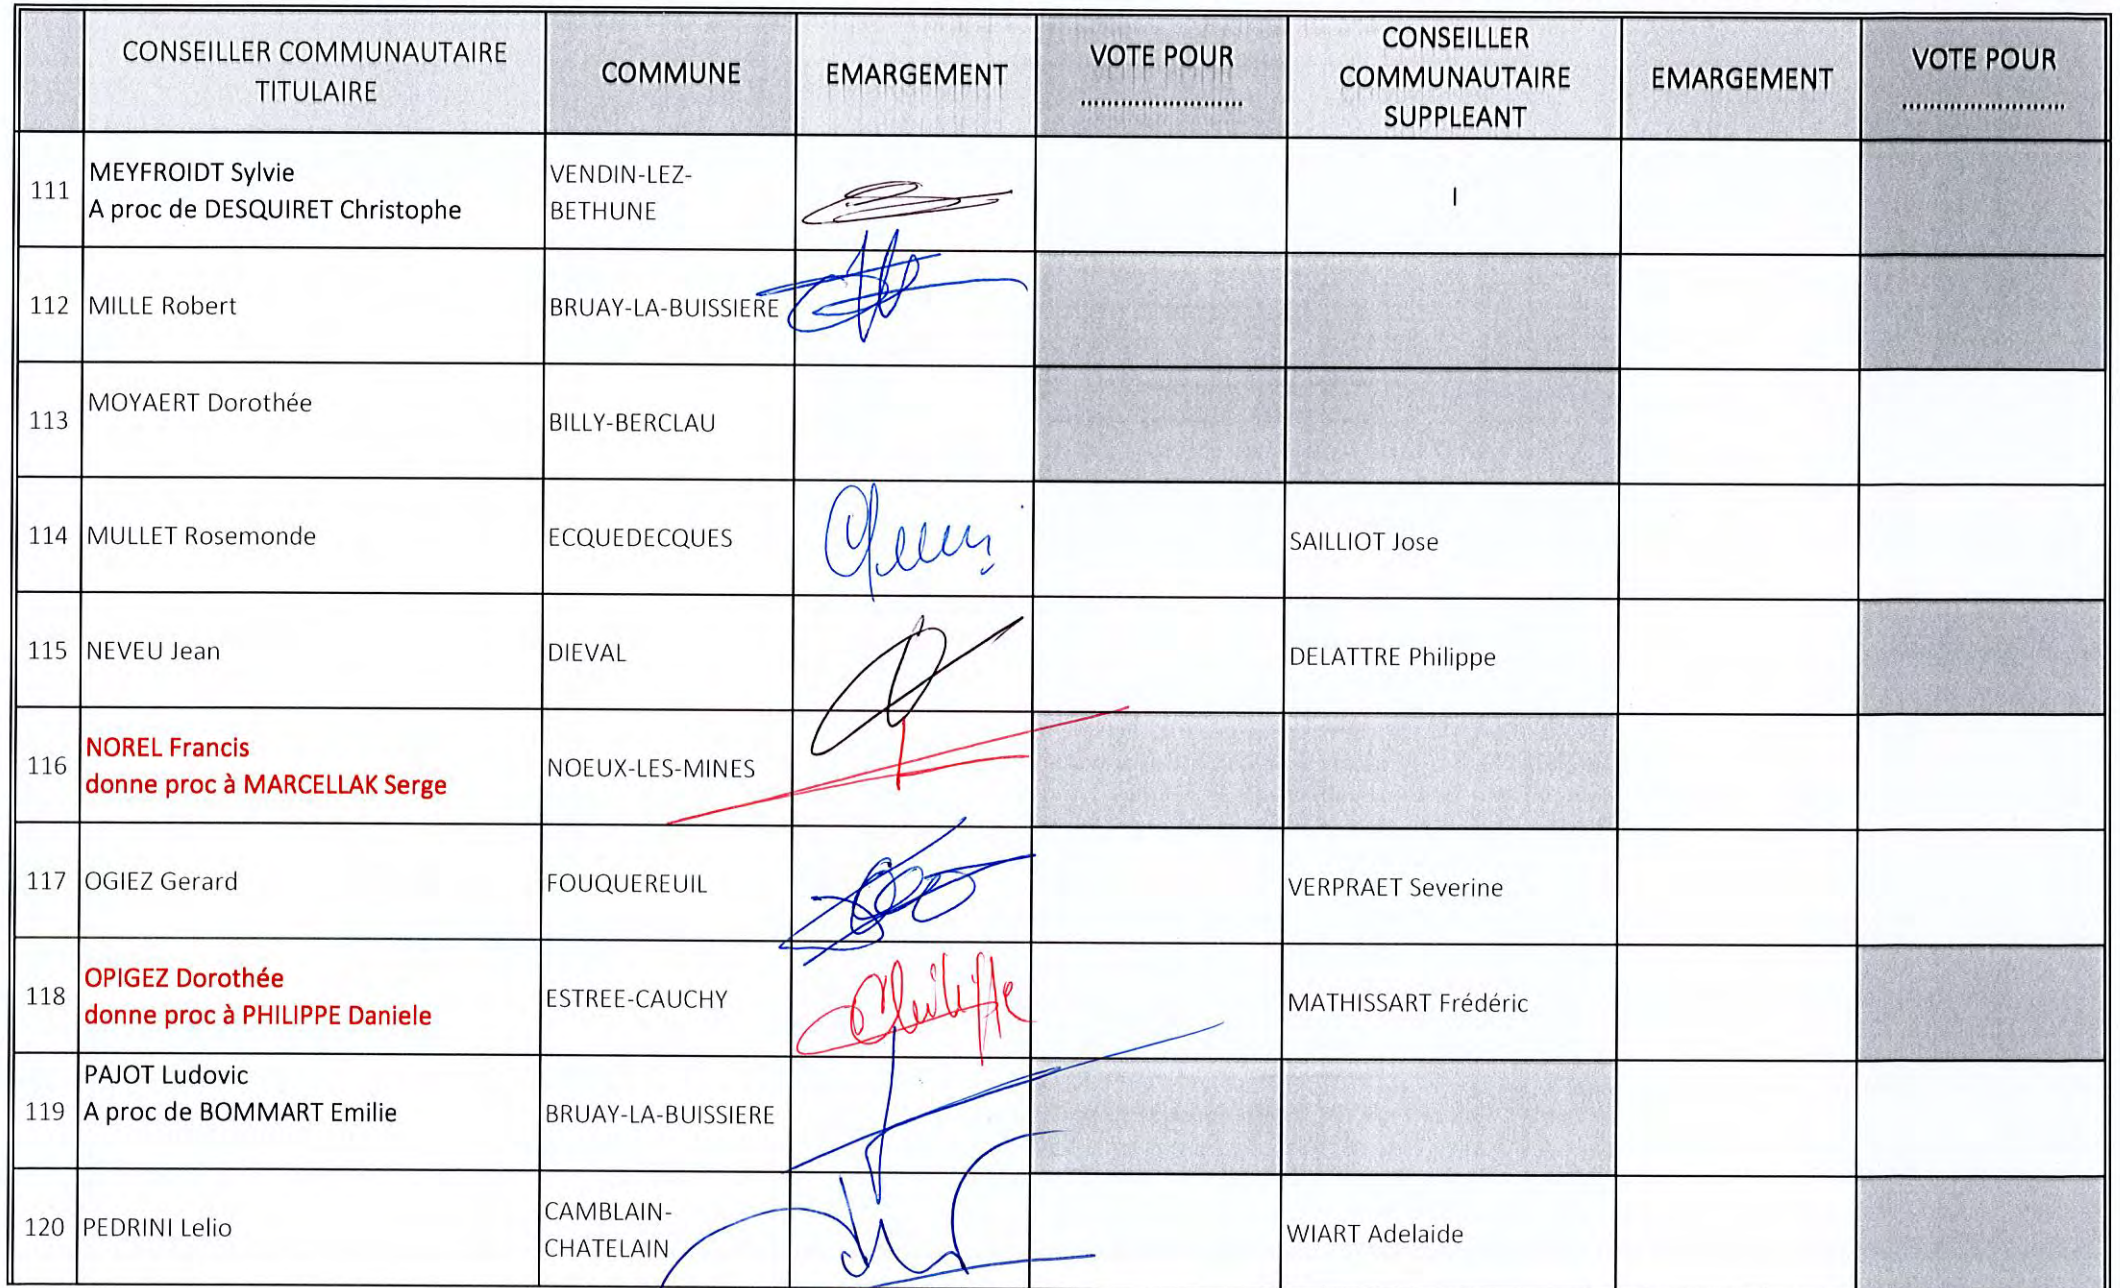 CONSEILLER COMMUNAUTAIRE
TITULAIRE
COMMUNE
EMARGEMENT
VOTE POUR
........................
CONSEILLER
COMMUNAUTAIRE
SUPPLEANT
EMARGEMENT
VOTE POUR
........................
111
MEYFROIDT Sylvie
A proc de DESQUIRET Christophe
VENDIN-LEZ-
BETHUNE
I
112
MILLE Robert
BRUAY-LA-BUISSIERE
113
MOYAERT Dorothée
BILLY-BERCLAU
114
MULLET Rosemonde
ECQUEDECQUES
SAILLIOT Jose
115
NEVEU Jean
DIEVAL
DELATTRE Philippe
116
NOREL Francis
donne proc à MARCELLAK Serge
NOEUX-LES-MINES
117
OGIEZ Gerard
FOUQUEREUIL
VERPRAET Severine
118
OPIGEZ Dorothée
donne proc à PHILIPPE Daniele
ESTREE-CAUCHY
MATHISSART Frédéric
119
PAJOT Ludovic
A proc de BOMMART Emilie
BRUAY-LA-BUISSIERE
120
PEDRINI Lelio
CAMBLAIN-
CHATELAIN
WIART Adelaide